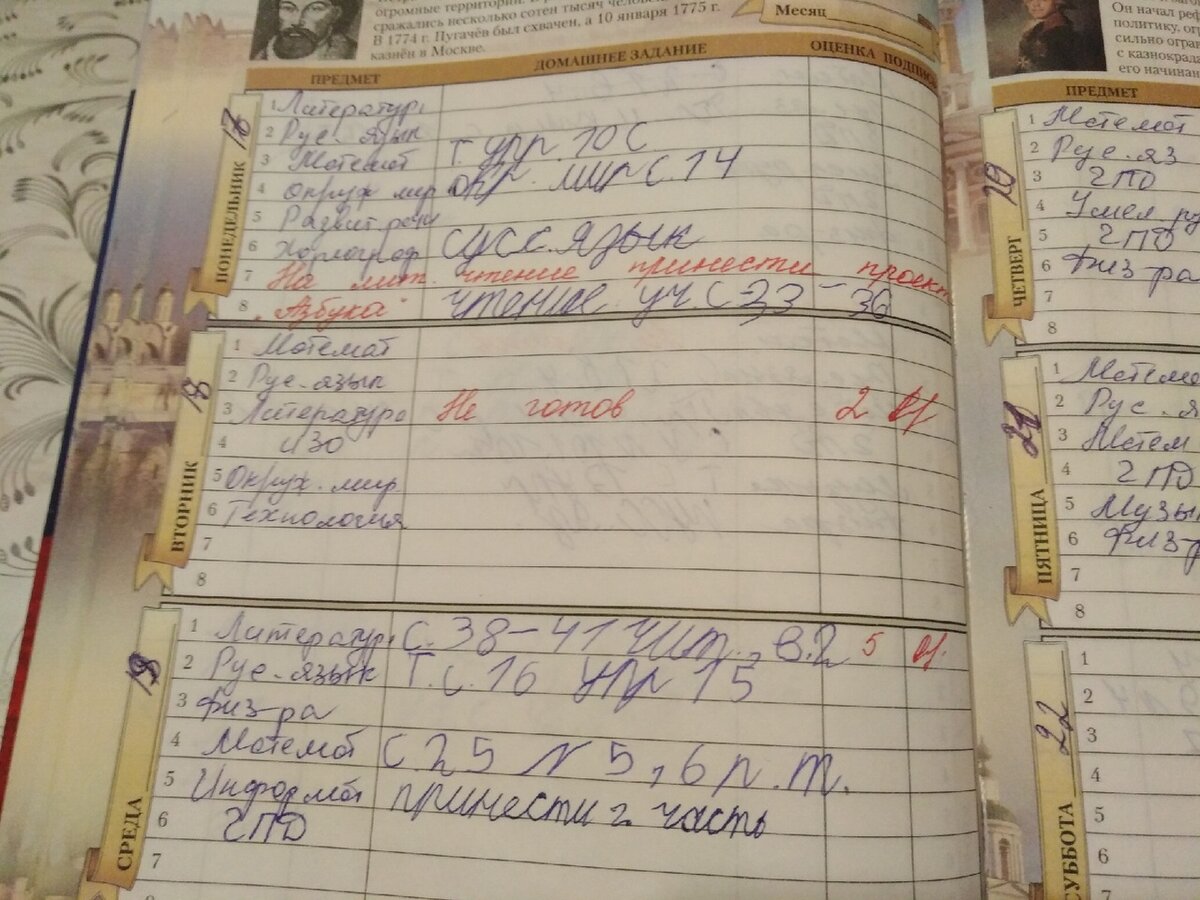 огромные территории.
сражались несколько сотен тысяч человек
В 1774 г. Пугачёв был схвачен, а 10 января 1775 г.
казнён в Москве.
Месяц
ПРЕДМЕТ ДОМАШНЕЕ ЗАДАНИЕ ОЦЕНКА ПОДПИСЬ
ПОНЕДЕЛЬНИК 17
1 Литератур
2 Рус. язык
3 Математ т. упр. 10 С
4 Окруж мир окр. мир С 14
5 Развит речи
6 Хориограф сусс. язык
7 На лит. чтение принести проект
8 "Азбука" чтение уч. С 33-36
ВТОРНИК 18
1 Математ
2 Рус. язык
3 Литература Не готов 2
4 ИЗО
5 Окруж. мир.
6 Технология
7
8
СРЕДА 19
1 Литератур С. 38-41 чит., в.2 5
2 Рус. язык Т. с. 16 упр 15
3 Физ-ра
4 Математ С. 25 N 5, 6 р. т.
5 Информат принести 2 часть
6 ГПД
7
8
Он начал
политику,
сильно
с казнокрада
его начинан
ПРЕДМЕТ
ЧЕТВЕРГ 20
1 Математ
2 Рус. яз
3 ГПД
4 Умел. ру
5 ГПД
6 Физ-ра
7
8
ПЯТНИЦА 21
1 Матема
2 Рус. я
3 Матем
4 ГПД
5 Музык
6 Физ-р
7
8
СУББОТА 22
1
2
3
4
5
6
7